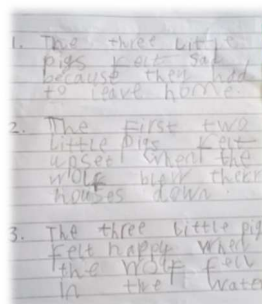 1. The three Little
pigs felt sad
because they had
to leave home.
2. The First two
Little pigs felt
upset when the
wolf blew their
houses down.
3. The three Little pig
Felt happy when
the wolf fell
in the water